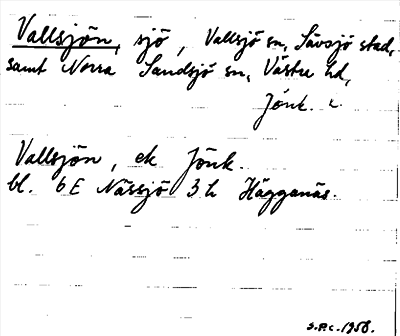 Vallsjön, sjö, Vallsjö sn, Sävsjö stad,
samt Norra Sandsjö sn, Västra hd,
Jönk. l.
Vallsjön, ek Jönk.
bl. 6E Nässjö 3h Hägganäs.
S.P.C. 1958.